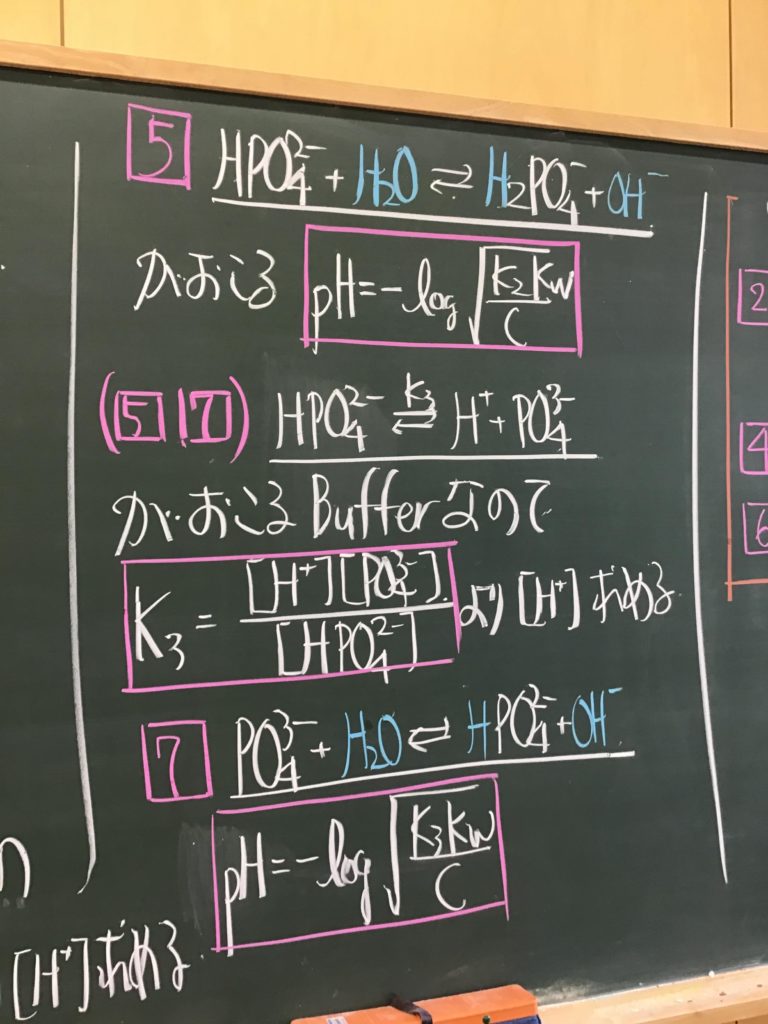 5 HPO₄²⁻ + H₂O ⇄ H₂PO₄⁻ + OH⁻
がおこる pH = -log√(K₂Kw/C)
(5 | 7) HPO₄²⁻ ⇄ K₃ H⁺ + PO₄³⁻
がおこる Bufferなので
K₃ = [H⁺][PO₄³⁻] / [HPO₄²⁻] より [H⁺] 求める
7 PO₄³⁻ + H₂O ⇄ HPO₄²⁻ + OH⁻
pH = -log√(K₃Kw/C)
[H⁺] 求める
2
4
6